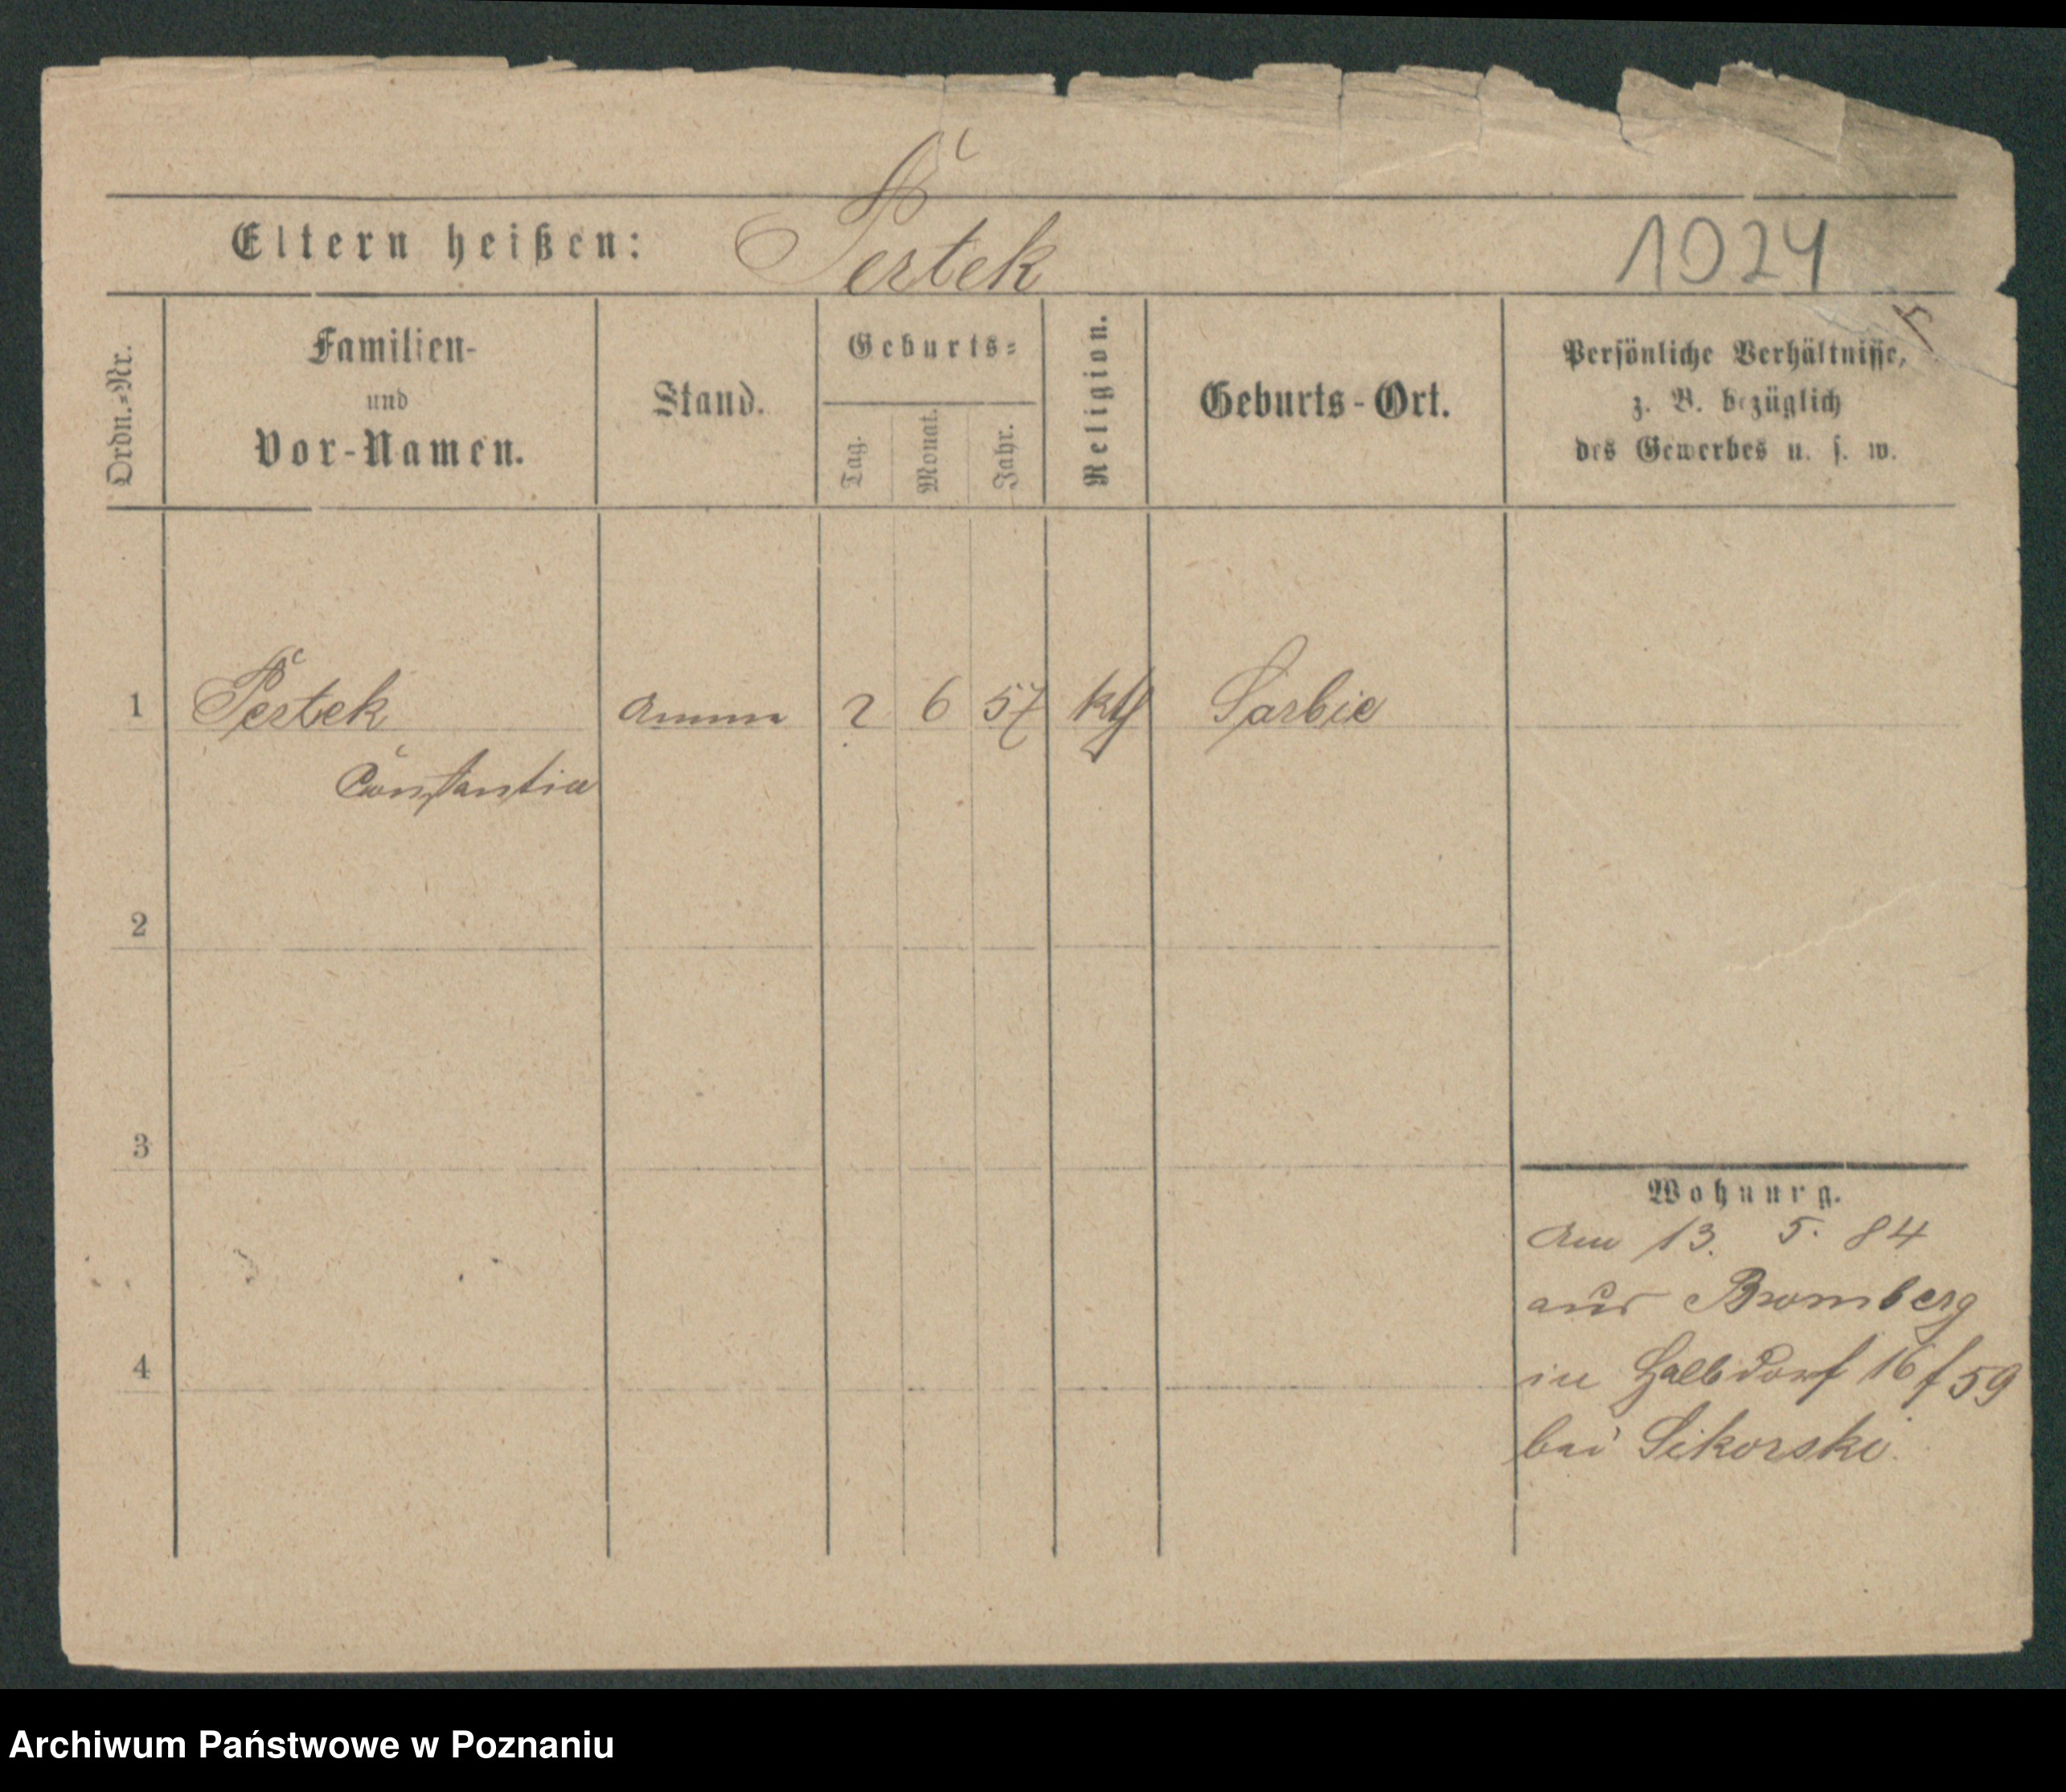 Eltern heißen: Pertek 1024
Ordn.-Nr.
Familien-
und
Vor-Namen.
Stand.
Geburts-
Tag.
Monat.
Jahr.
Religion.
Geburts-Ort.
Persönliche Verhältnisse,
z. B. bezüglich
des Gewerbes u. s. w.
1 Pertek Amme 2 6 57 kth Sarbie
Constantia
2
3
4
Wohnung.
Am 13. 5. 84
aus Bromberg
in Halbdorf 16/59
bei Sikorski.
Archiwum Państwowe w Poznaniu